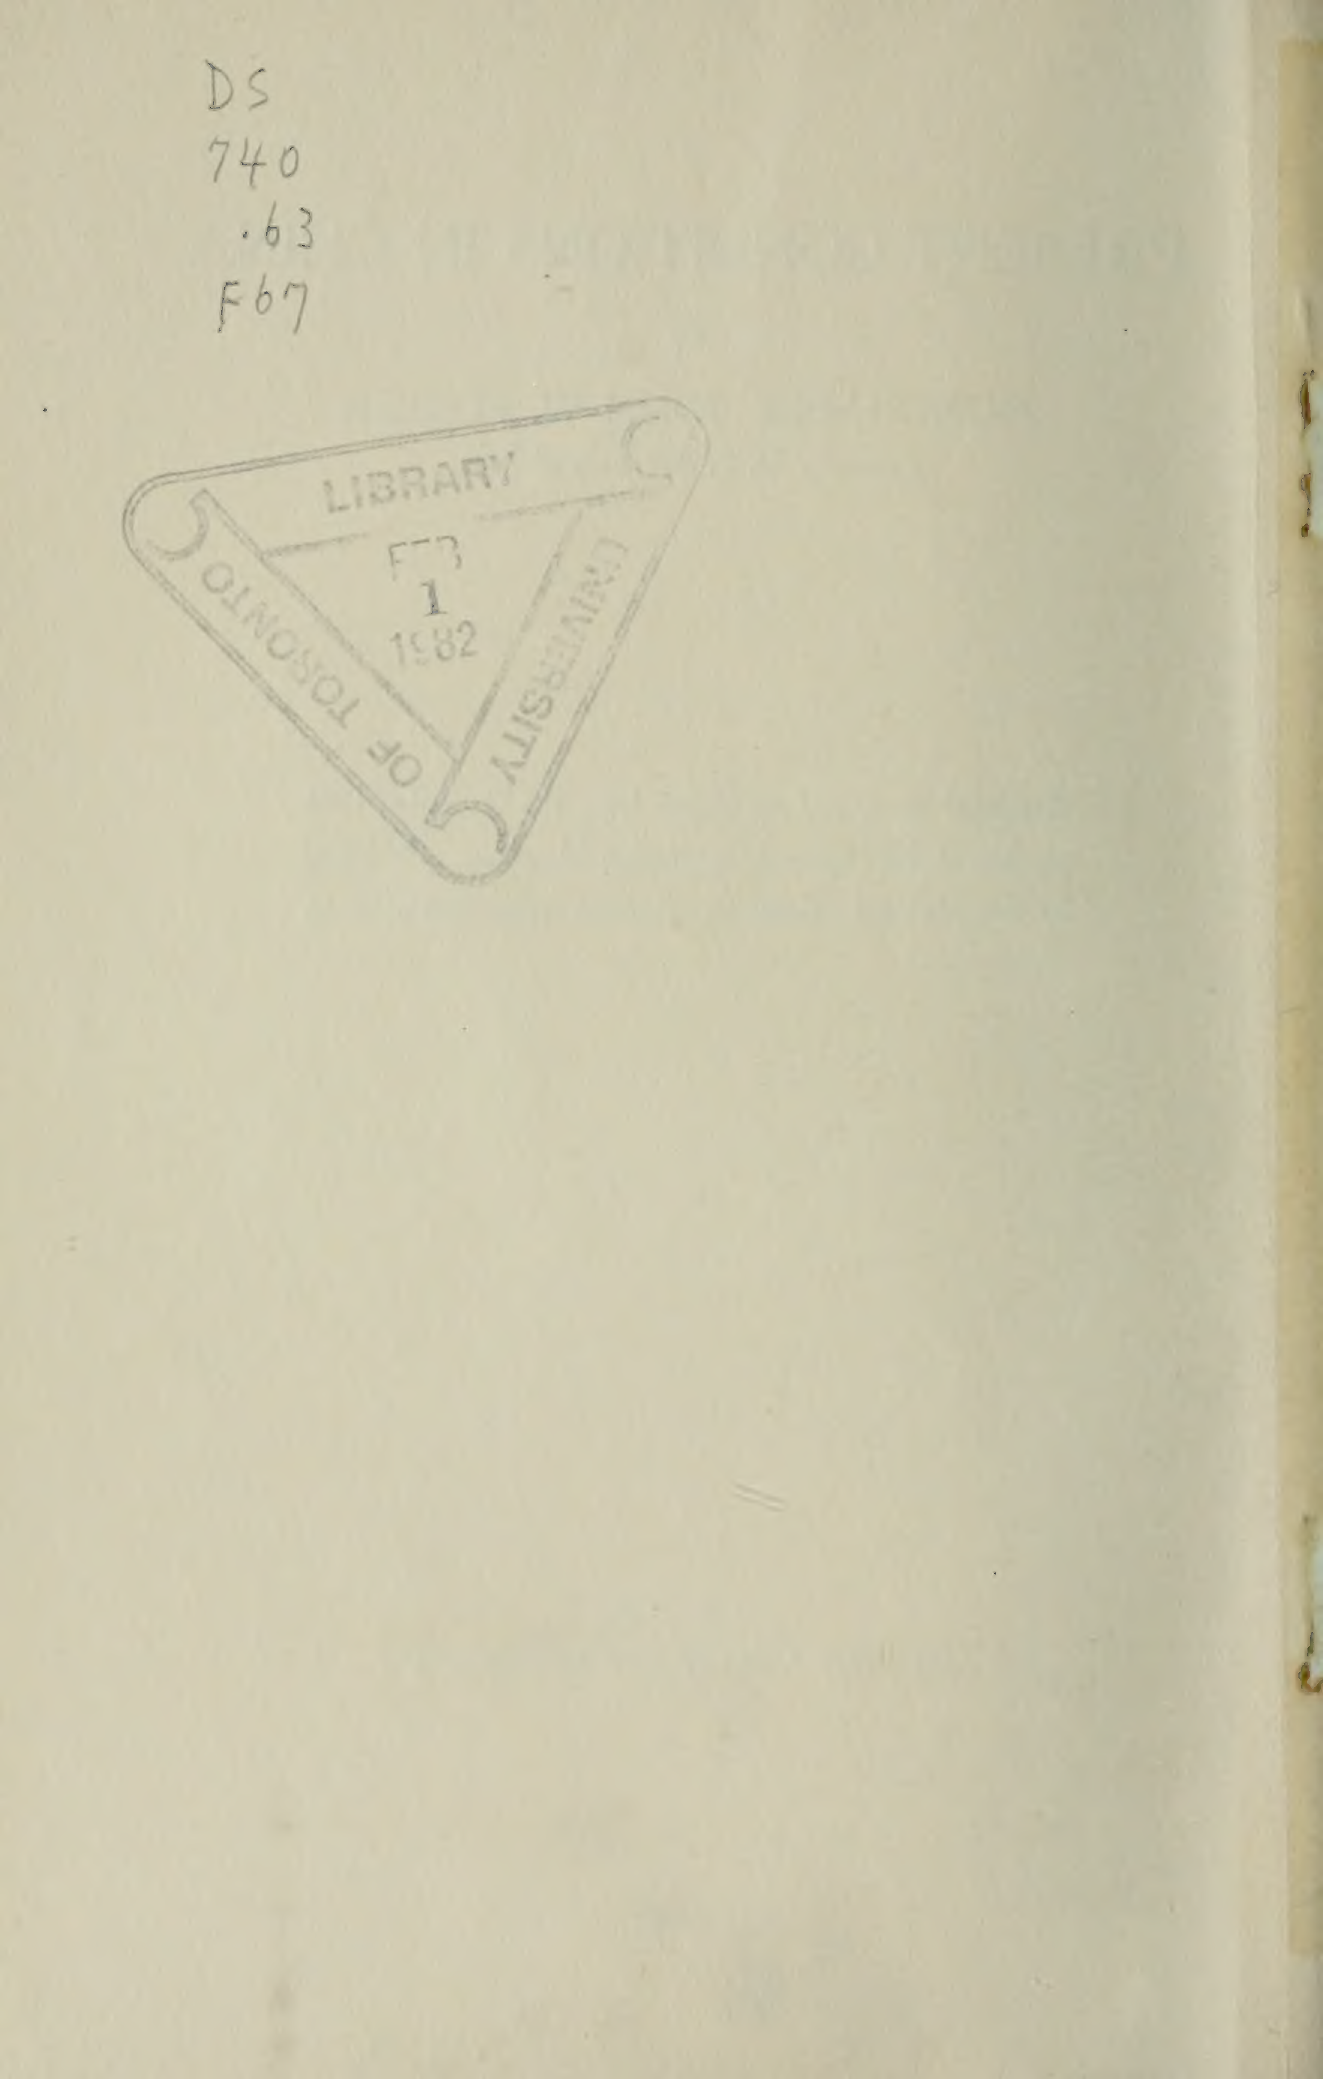 DS
740
.63
F67
LIBRARY
FEB
1
1982
UNIVERSITY
OF TORONTO